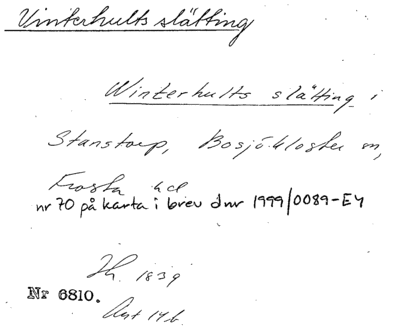 Vinterhults slätting
Winterhults slätting i
Stanstorp, Bosjökloster sn,
Frosta hd
nr 70 på karta i brev dnr 1999/0089-EY
1839
Nr 6810.
Akt 14b.